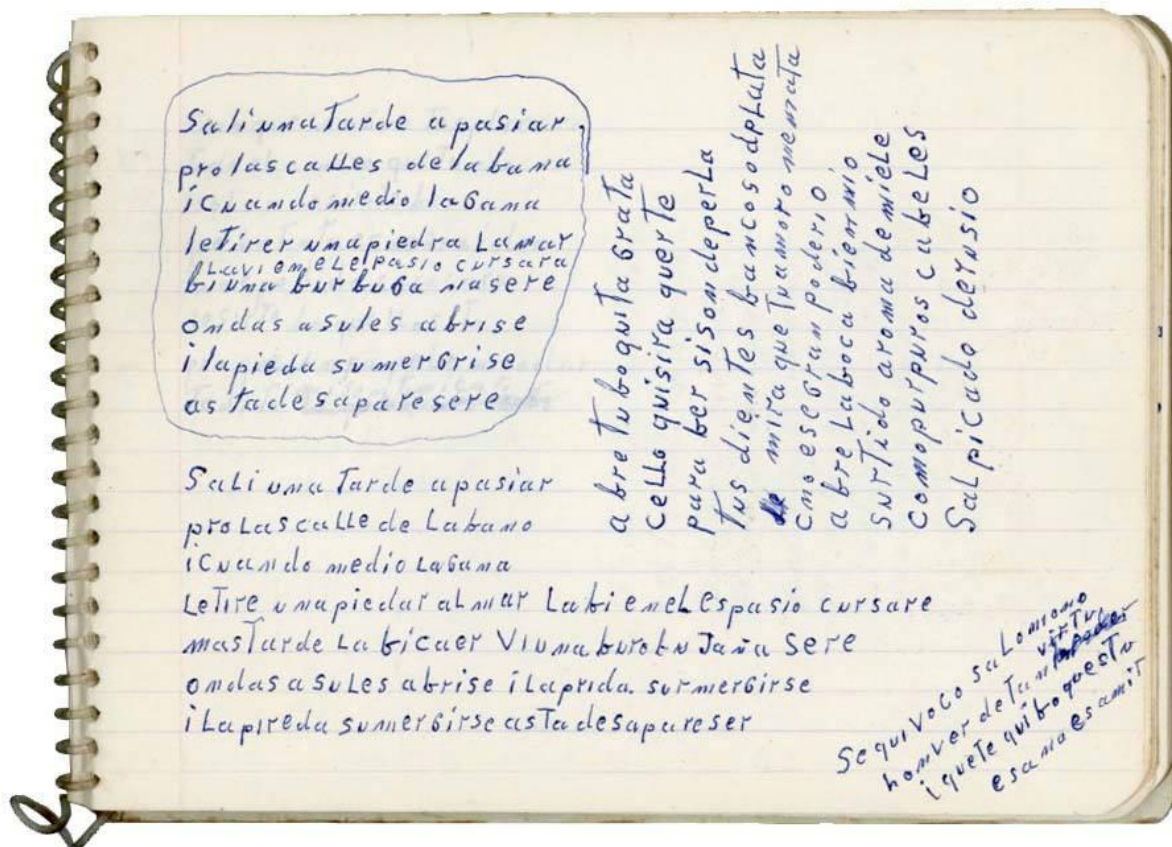 Saliunatarde apasiar.
prolascalles delabana
icuandomedio lagana
letirer unapiedra Lamar
Lavienelepasio cursara
biuna burbuga nasere
ondas asules abrise
ilapieda sumergrise
astadesaparesere
Saliunatarde apasiar
prolascalle de Labano
icuando medio Lagana
Letire unapiedar almar Labi enel espasio cursare
mastarde Labicaer Viuna
ondas asules abrise ilaprida. surmergirse
ilapireda sumergirse astadesapareser
abre tuboquita grata
cello quisira querte
para ber sisondeperla
tus dientes bancosodplata
mira que tuamoro memata
cmo esegranpoderio
abre Laboca bienmio
surtido aroma demiele
comopurpuros cabeles
Salpicado derusio
Sequivoco saLomono
homver detan virtu
iquete quiboquestu
esamaesamit